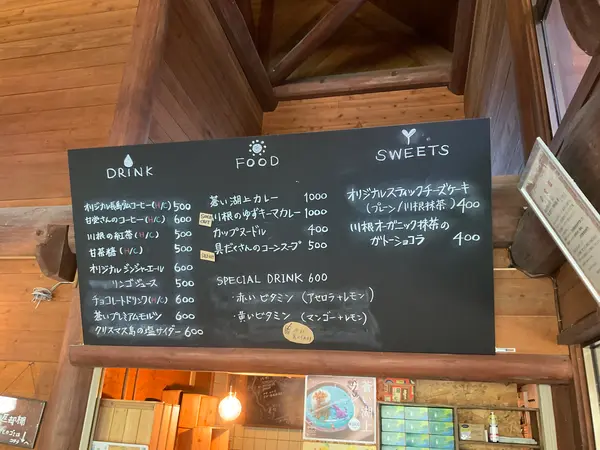 DRINK
オリジナル長島ダムコーヒー(H/C) 500
甘党さんのコーヒー(H/C) 600
川根の紅茶(H/C) 500
甘茶糖(H/C) 500
オリジナルジンジャーエール 600
リンゴジュース 500
チョコレートドリンク(H/C) 600
蒼いプレミアムモルツ 600
クリスマス島の塩サイダー 600
FOOD
蒼い湖上カレー 1000
川根のゆずキーマカレー 1000
カップヌードル 400
具だくさんのコーンスープ 500
SPECIAL DRINK 600
・赤いビタミン(アセロラ+レモン)
・黄いビタミン(マンゴー+レモン)
SWEETS
オリジナルスティックチーズケーキ
(プレーン/川根抹茶) 400
川根オーガニック抹茶の
ガトーショコラ 400